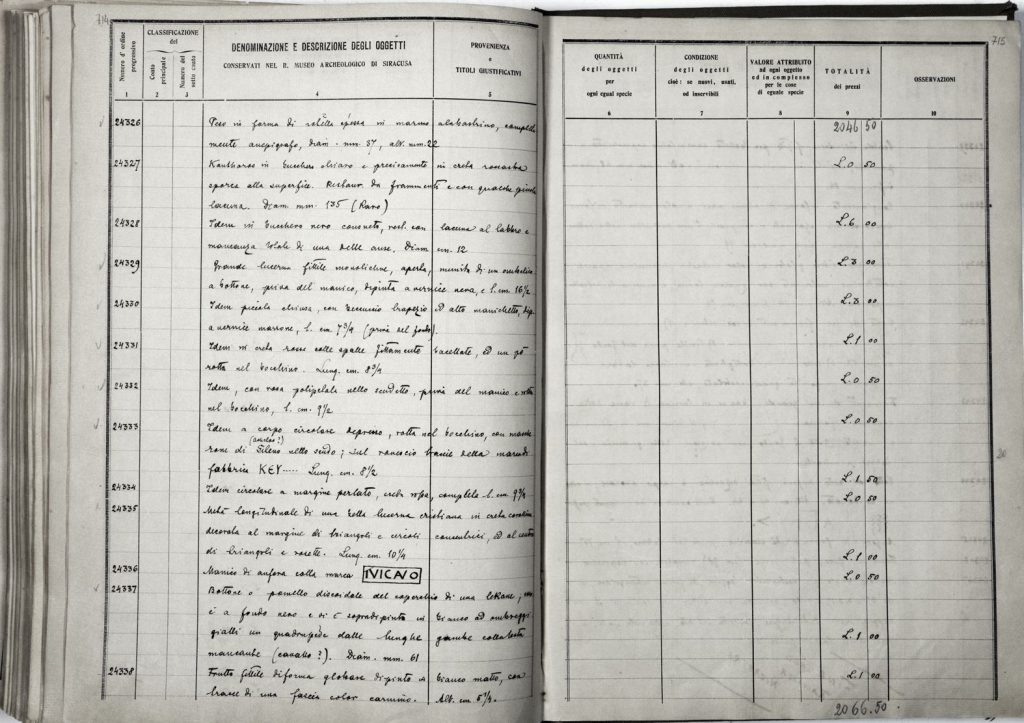 714
Numero d'ordine progressivo
CLASSIFICAZIONE
del
Conto principale
Numero del sotto conto
DENOMINAZIONE E DESCRIZIONE DEGLI OGGETTI
CONSERVATI NEL R. MUSEO ARCHEOLOGICO DI SIRACUSA
PROVENIENZA
e
TITOLI GIUSTIFICATIVI
1 2 3 4 5
24326 Peso in forma di rotella spessa in marmo alabastrino, completa
mente anepigrafo, diam. mm. 57, alt. mm. 22
24327 Kantharos in bucchero chiaro e precisamente in creta
sporca alla superficie. Restaur. da frammenti e con qualche piccola
lacuna. Diam. mm. 135 (Raro)
24328 Idem in bucchero nero consueto, rest. con lacuna al labbro e
mancanza totale di una delle anse. Diam. cm. 12
24329 Grande lucerna fittile monolicne, aperta, munita di un ombelico
a bottone, priva del manico, dipinta a vernice nera, e l. cm. 16 1/2
24330 Idem piccola chiusa, con beccuccio trapezio ed alto manichetto, dip.
a vernice marrone, l. cm. 7 3/4 (priva del fondo).
24331 Idem in creta rossa colle spalle fittamente baccellate, ed un pò
rotta nel becchino. Lung. cm. 8 3/4
24332 Idem, con rosa polipetala nello scudetto, priva del manico e rotta
nel becchino, l. cm. 9 1/2
24333 Idem a corpo circolare depresso, rotta nel becchino, con masche
rone di Sileno nello scudo; sul rovescio tracie della marca di
fabbrica KEY..... Lung. cm. 8 1/2
24334 Idem circolare a margine perlato, creta rossa, completa l. cm. 9 3/4
24335 Metà longitudinale di una bella lucerna cristiana in creta corallina
decorata al margine di triangoli e circoli concentrici, ed al centro
di triangoli e rosette. Lung. cm. 10 1/4
24336 Manico di anfora colla marca
24337 Bottone o pomello discoidale del coperchio di una lekane,
è a fondo nero e vi è sopradipinto in bianco ad ombreggi
gialli un quadrupede dalle lunghe gambe colla testa
mancante (cavallo?). Diam. mm. 61
24338 Frutto fittile di forma globare dipinto in bianco matto, con
tracce di una fascia color carmino. Alt. cm. 5 1/4.
715
QUANTITÀ
degli oggetti
per
ogni egual specie
CONDIZIONE
degli oggetti
cioè: se nuovi, usati,
od inservibili
VALORE ATTRIBUITO
ad ogni oggetto
ed in complesso
per le cose
di eguale specie
TOTALITÀ
dei prezzi
OSSERVAZIONI
6 7 8 9 10
2046 50
L. 0 50
L. 6 00
L. 3 00
L. 3 00
L. 1 00
L. 0 50
L. 0 50
L. 1 50
L. 0 50
L. 1 00
L. 0 50
L. 1 00
L. 1 00
2066.50